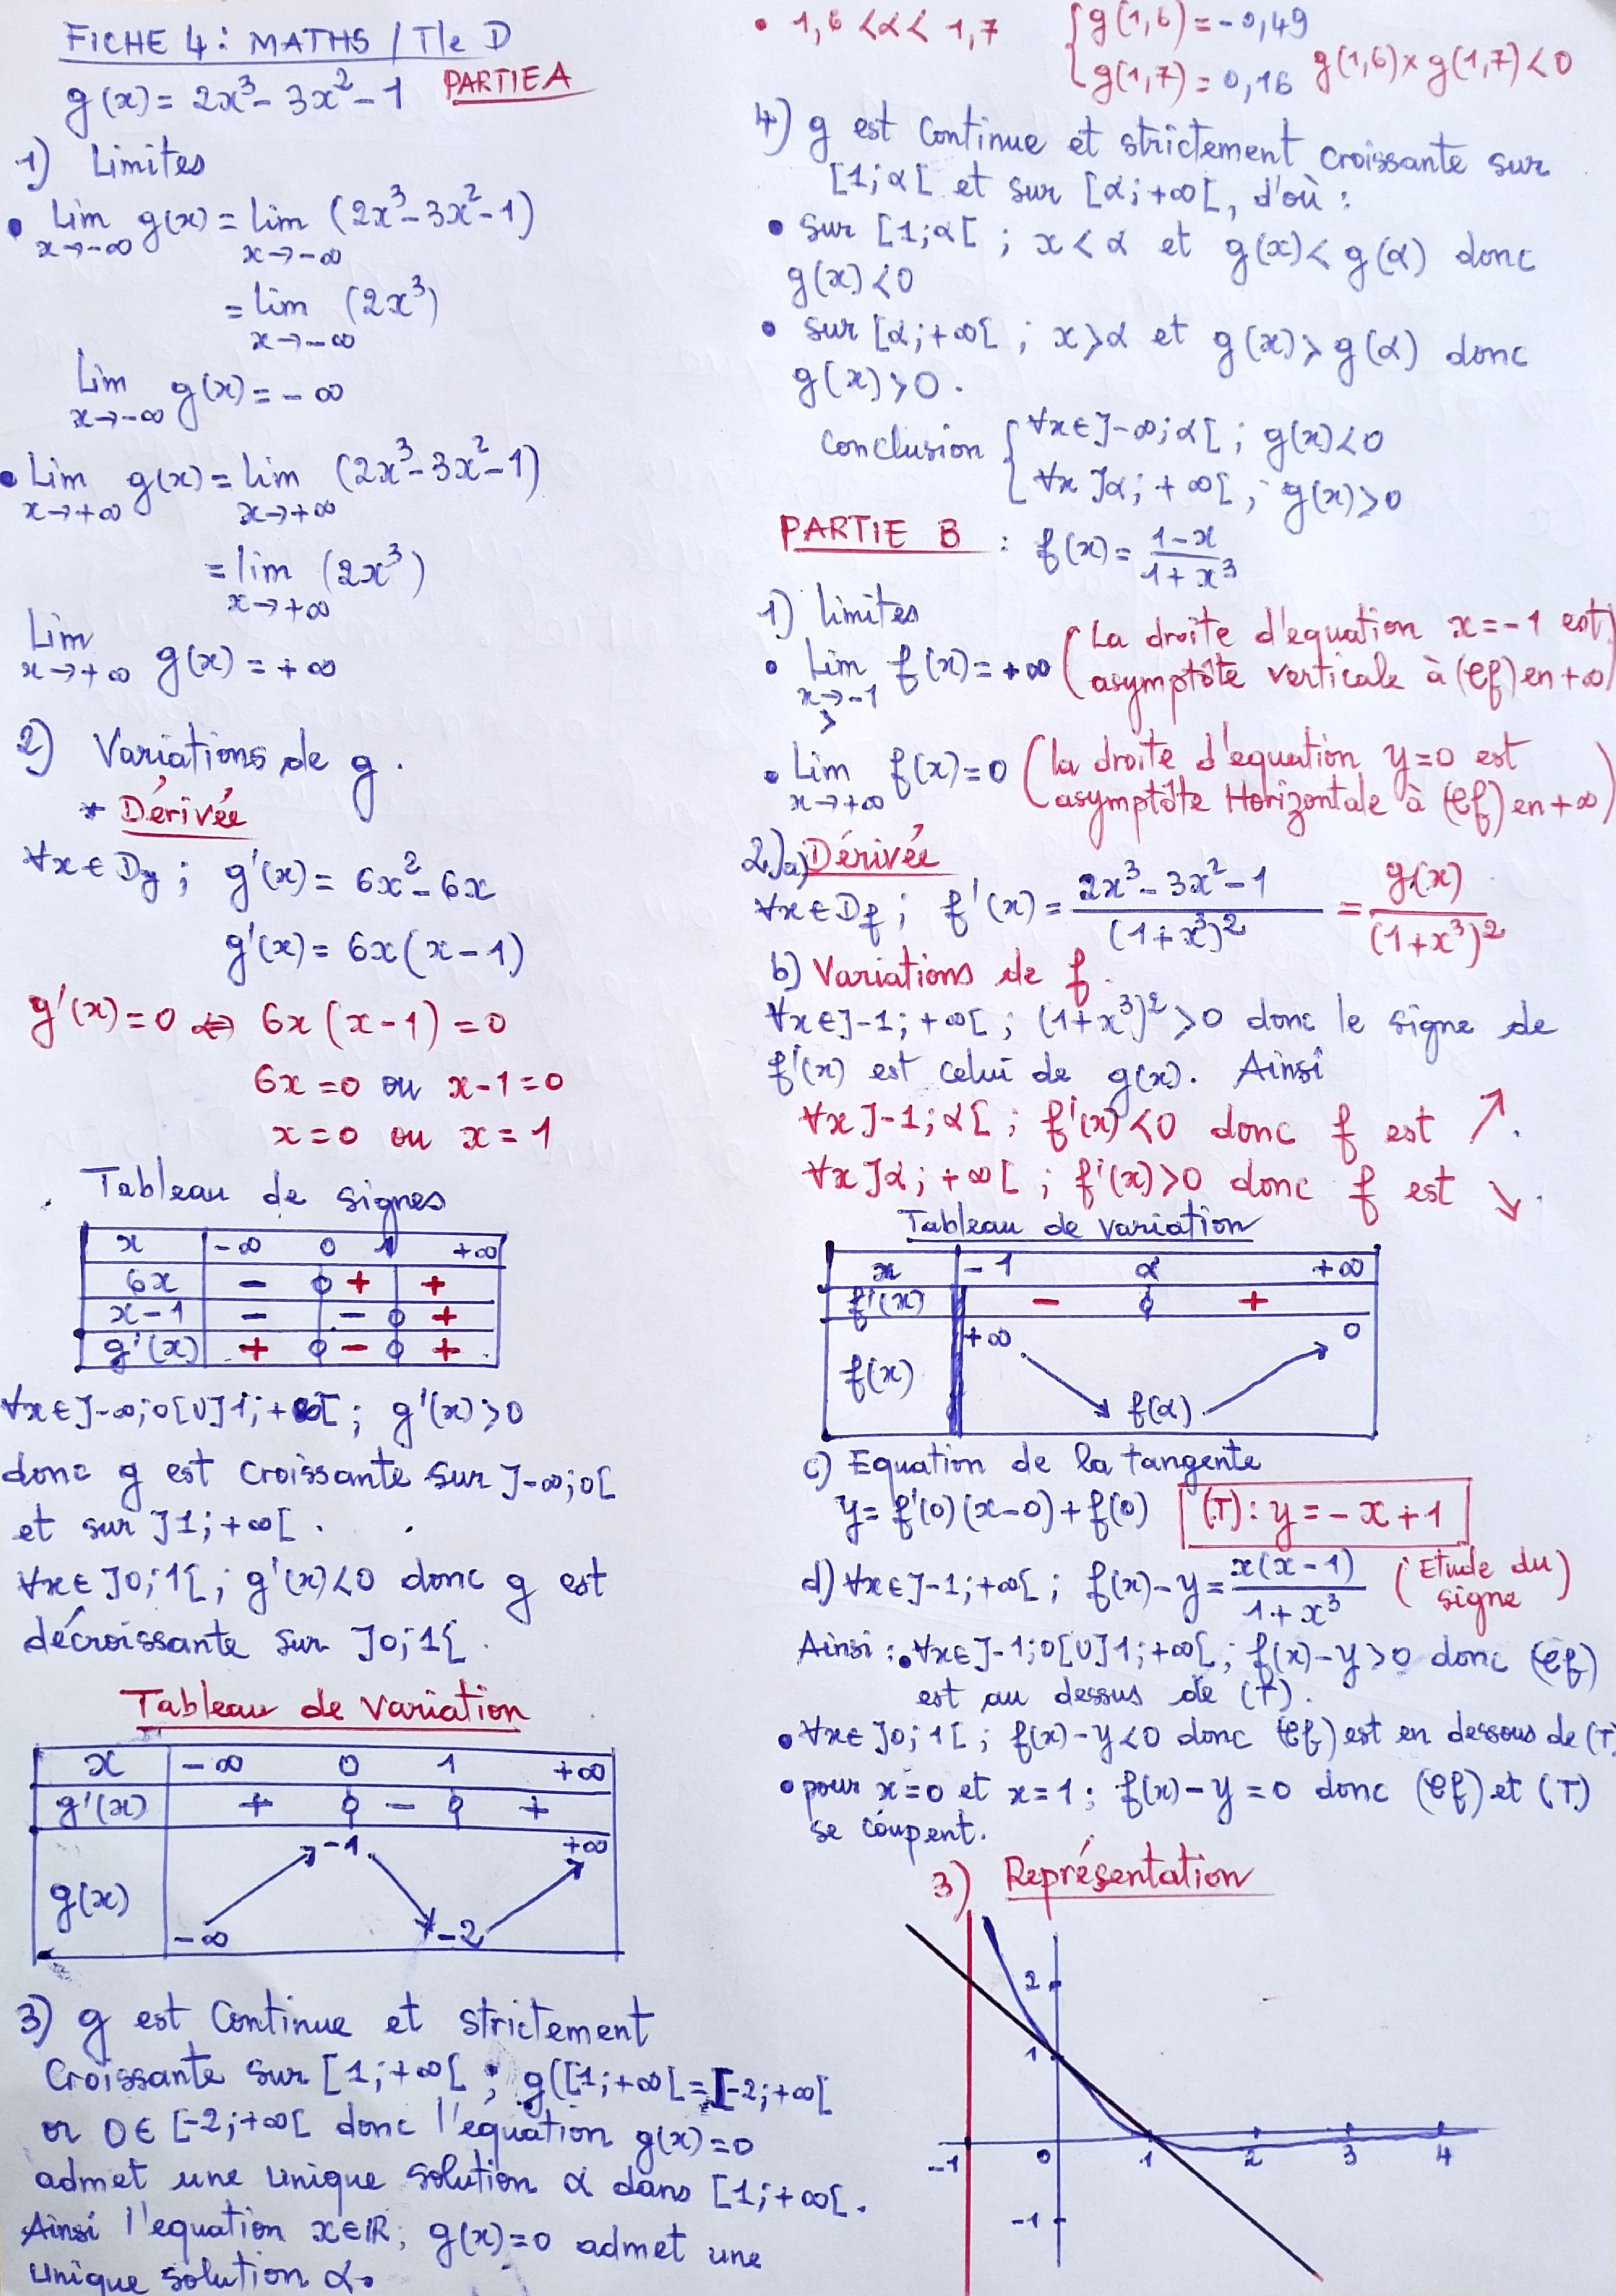 FICHE 4 : MATHS / Tle D
g(x) = 2x³ - 3x² - 1 PARTIE A
1) Limites
• Lim x→-∞ g(x) = lim x→-∞ (2x³ - 3x² - 1)
= lim x→-∞ (2x³)
Lim x→-∞ g(x) = -∞
• Lim x→+∞ g(x) = lim x→+∞ (2x³ - 3x² - 1)
= lim x→+∞ (2x³)
Lim x→+∞ g(x) = +∞
2) Variations de g.
* Dérivée
∀x ∈ Dg ; g'(x) = 6x² - 6x
g'(x) = 6x(x - 1)
g'(x) = 0 ⇔ 6x(x-1) = 0
6x = 0 ou x-1 = 0
x = 0 ou x = 1
Tableau de signes
x -∞ 0 1 +∞
6x - 0 + +
x-1 - - 0 +
g'(x) + 0 - 0 +
∀x ∈ ]-∞;0[ U ]1;+∞[ ; g'(x) > 0
donc g est croissante sur ]-∞;0[
et sur ]1;+∞[ .
∀x ∈ ]0;1[ ; g'(x) < 0 donc g est
décroissante sur ]0;1[.
Tableau de variation
x -∞ 0 1 +∞
g'(x) + 0 - 0 +
-1 +∞
g(x)
-∞ -2
3) g est continue et strictement
croissante sur [1;+∞[ ; g([1;+∞[ = [-2;+∞[
or 0 ∈ [-2;+∞[ donc l'équation g(x) = 0
admet une unique solution α dans [1;+∞[.
Ainsi l'equation x∈ℝ; g(x) = 0 admet une
unique solution α.
• 1,6 < α < 1,7 { g(1,6) = -0,49
g(1,7) = 0,16 g(1,6) × g(1,7) < 0
4) g est continue et strictement croissante sur
[1;α[ et sur [α;+∞[, d'où :
• sur [1;α[ ; x < α et g(x) < g(α) donc
g(x) < 0
• sur [α;+∞[ ; x > α et g(x) > g(α) donc
g(x) > 0.
Conclusion { ∀x ∈ ]-∞;α[ ; g(x) < 0
∀x ]α;+∞[ ; g(x) > 0
PARTIE B : f(x) = (1-x)/(1+x³)
1) limites
• Lim x→-1 > f(x) = +∞ (La droite d'equation x = -1 est
asymptôte verticale à (Cf) en +∞)
• Lim x→+∞ f(x) = 0 (la droite d'equation y = 0 est
asymptôte Horizontale à (Cf) en +∞)
2) a) Dérivée
∀x ∈ Df ; f'(x) = (2x³ - 3x² - 1)/(1+x³)² = g(x)/(1+x³)²
b) Variations de f.
∀x ∈ ]-1;+∞[ ; (1+x³)² > 0 donc le signe de
f'(x) est celui de g(x). Ainsi
∀x ]-1;α[ ; f'(x) < 0 donc f est ↗.
∀x ]α;+∞[ ; f'(x) > 0 donc f est ↘.
Tableau de variation
x -1 α +∞
f'(x) - 0 +
+∞ 0
f(x) f(α)
c) Equation de la tangente
y = f'(0)(x-0) + f(0) (T) : y = -x + 1
d) ∀x ∈ ]-1;+∞[ ; f(x) - y = x(x-1)/(1+x³) (Etude du signe)
Ainsi : • ∀x ∈ ]-1;0[ U ]1;+∞[ ; f(x) - y > 0 donc (Cf)
est au dessus de (T).
• ∀x ∈ ]0;1[ ; f(x) - y < 0 donc (Cf) est en dessous de (T)
• pour x = 0 et x = 1 ; f(x) - y = 0 donc (Cf) et (T)
se coupent.
3) Représentation
2
1
-1 0 1 2 3 4
-1